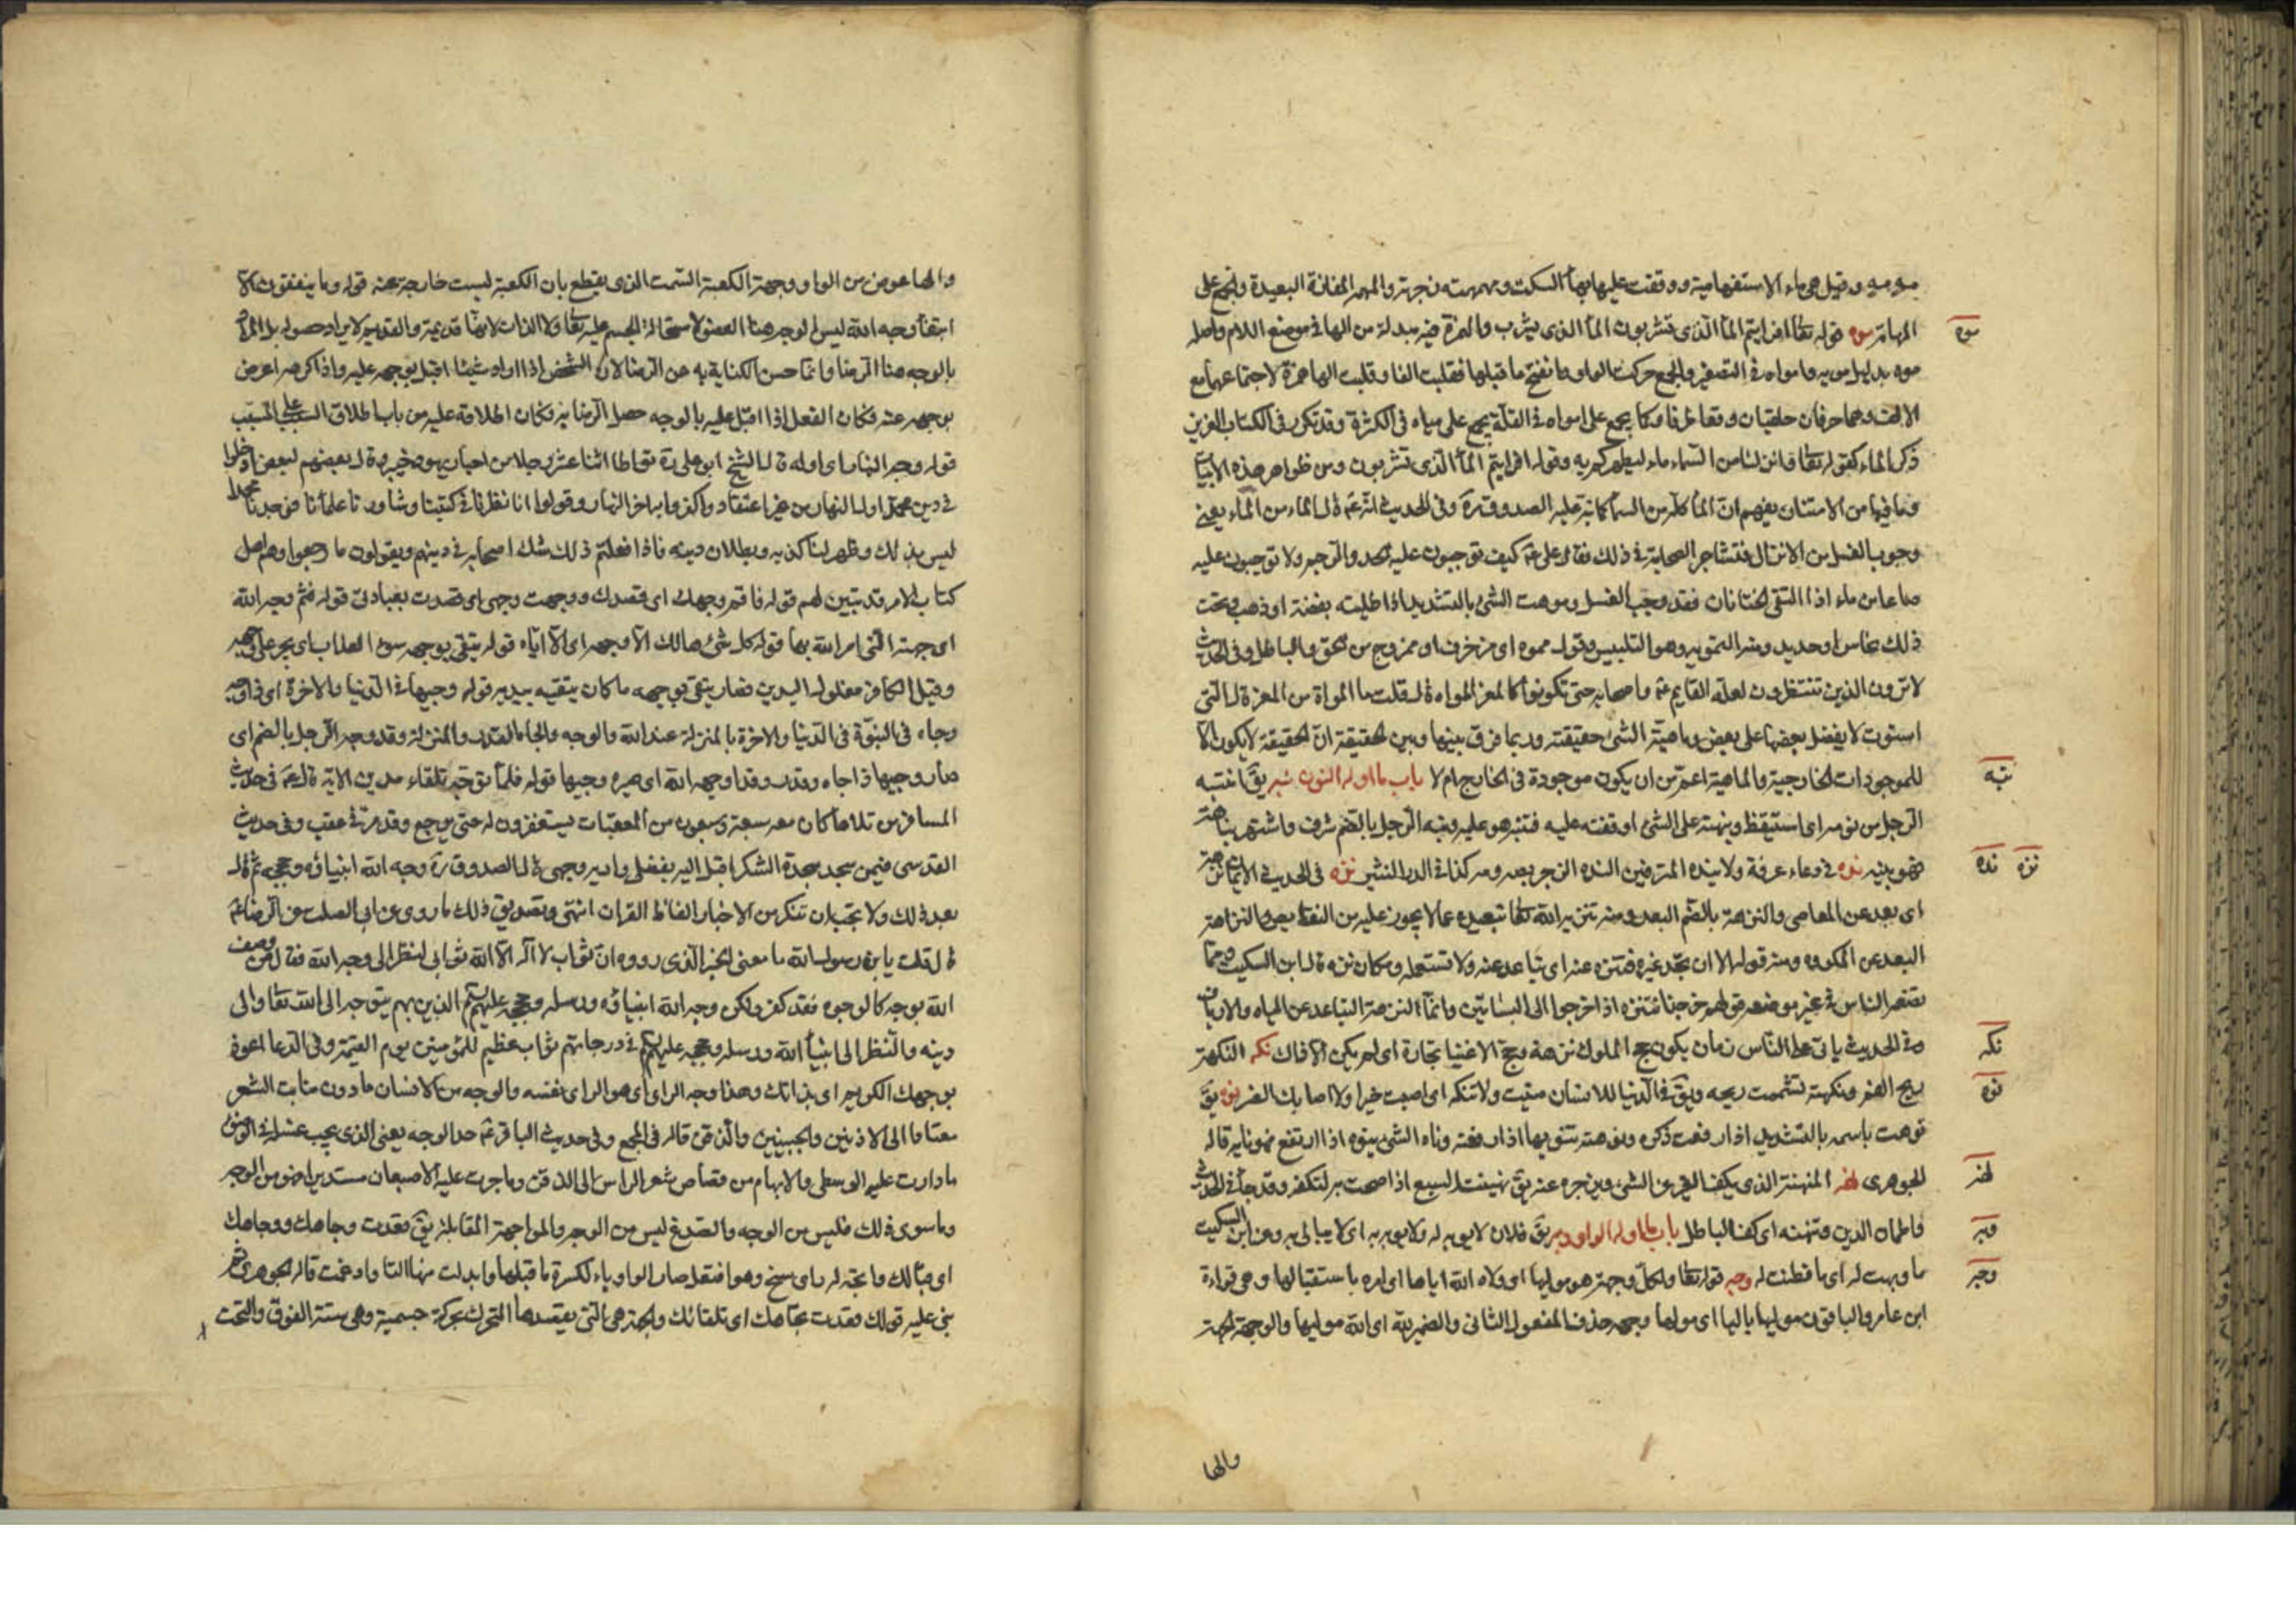 مه مه وقيل هي ماء الاستفهامية ووقفت عليها بهاء السكت ومهمهت به زجرته والمهمه المفازة البعيدة والجمع على
المهامه موه قوله تعا افرايتم الماء الذى تشربون الماء الذى يشرب والهمزة فيه مبدلة من الها في موضع اللام واصله
موه بدليل مويه وامواه في التصغير والجمع حركت الواو وانفتح ما قبلها فقلبت الفا وقلبت الها همزة لاجتماعها مع
الالف وهما حرفان حلقيان وقعا طرفا وكما يجمع على امواه في القلة يجمع على مياه في الكثرة وقد تكرر في الكتاب العزيز
ذكر الماء كقوله تعا وانزلنا من السماء ماء ليطهركم به وقوله افرايتم الماء الذى تشربون ومن ظواهر هذه الايات
وما فيها من الامتنان يفهم ان الماء كله من السماء كما نبه عليه الصدوق ره وفي الحديث انه ع قال الماء من الماء يعنى
وجوب الغسل من الانزال فتشاجر الصحابة في ذلك فقال على ع كيف توجبون عليه الحد والرجم ولا توجبون عليه
صاعا من ماء اذا التقى الختانان فقد وجب الغسل وموهت الشئ بالتشديد اذا طليته بفضة او ذهب وتحت
ذلك نحاس او حديد ومنه التمويه وهو التلبيس وقول مموه اى مزخرف او ممزوج من الحق والباطل وفي الحديث
لا ترون الذين تنتظرون لعله القايم ع واصحابه حتى تكونوا كالمعز المواه قال قلت ما المواة من المعز قال التى
استوت لا يفضل بعضها على بعض وماهية الشئ حقيقته وربما فرق بينها وبين الحقيقة ان الحقيقة لا يكون الا
للموجودات الخارجية والماهية اعم من ان يكون موجودة في الخارج ام لا باب ما اوله النون نبه يق انتبه
الرجل من نومه اى استيقظ ونبهته على الشئ اوقفته عليه فتنبه هو عليه ونبه الرجل بالضم شرف واشتهر نباهة
فهو نبيه نده في دعاء عرفة ولا ينده المترفين النده الزجر بصه ومه كذا في الدر النثير نزه في الحديث الايمان نزهة
اى بعد عن المعاصى والنزهة بالضم البعد ومنه تنزيه الله تعا تبعيده عما لا يجوز عليه من النقايص والنزاهة
البعد عن المكروه ومنه قوله الا ان يجد غيره فتنزه عنه اى تباعد عنه ولا تستعمله ومكان نزه قال ابن السكيت ومما
تضعه الناس في غير موضعه قولهم خرجنا نتنزه اذا خرجوا الى البساتين وانما النزهة التباعد عن المياه والارياف
وفي الحديث ياتى على الناس زمان يكون حج الملوك نزهة وحج الاغنيا تجارة اى لم يكن الا ذاك نكه النكهة
ريح الفم ونكهته تشممت ريحه ويق في الدنيا للانسان هنيت ولا تنكه اى اصبت خيرا ولا اصابك الضر نوه يق
نوهت باسمه بالتشديد اذا رفعت ذكره ونوهته تنويها اذا رفعته وناه الشئ ينوه اذا ارتفع فهو نايه قاله
الجوهرى نهنه النهنهة الذى يكف الغير عن الشئ ويزجره عنه يق نهنهت السبع اذا صحت به لتكفه وقد جاء في الحديث
فاطمان الدين وتنهنه اى كف الباطل باب ما اوله الواو وبه يق فلان لا يوبه له ولا يوبه به اى لا يبالى به وعن ابن السكيت
ما وبهت له اى ما فطنت له وجه قوله تعا ولكل وجهة هو موليها اى ولاه الله اياها اى امره باستقبالها وهى قراءة
ابن عامر والباقون موليها بالياء اى موليها وجهه حذف المفعول الثانى والضمير لله اى الله موليها والوجهة الجهة
والها
موه
نبه
نزه نده
نكه
نوه
نهنه
وبه
وجه
والها عوض من الواو وجهة الكعبة السمت الذى يقطع بان الكعبة ليست خارجة عنه قوله وما ينفقون الا
ابتغاء وجه الله ليس الوجه هنا العضو لاستحالة الجسم عليه تعا ولا الذات لانها قديمة والقديم لا يراد حصوله بل المراد
بالوجه هنا الرضا وانما حسن الكناية به عن الرضا لان الشخص اذا اراد شيئا اقبل بوجهه عليه واذا كرهه اعرض
بوجهه عنه فكان الفعل اذا اقبل عليه بالوجه حصل الرضا به فكان اطلاقه عليه من باب اطلاق السبب على المسبب
قوله وجه النهار اى اوله قال الشيخ ابو على ره تواطا اثنا عشر رجلا من احبار يهود خيبر وقال بعضهم لبعض ادخلوا
في دين محمد اول النهار من غير اعتقاد واكفروا به اخر النهار وقولوا انا نظرنا في كتبنا وشاورنا علمائنا فوجدنا محمدا
ليس بذلك وظهر لنا كذبه وبطلان دينه فاذا فعلتم ذلك شك اصحابه في دينهم ويقولون ما رجعوا وهم اهل
كتاب الا لامر قد تبين لهم قوله فاقم وجهك اى قصدك ووجهت وجهى اى قصدت بعبادتى قوله فثم وجه الله
اى جهته التى امر الله بها قوله كل شئ هالك الا وجهه اى الا اياه قوله يتقى بوجهه سوء العذاب اى يجر على وجهه
وقيل الكافر مغلول اليدين فصار يتقى بوجهه ما كان يتقيه بيديه قوله وجيها في الدنيا والاخرة اى ذا وجه
وجاه في النبوة في الدنيا والاخرة بالمنزلة عند الله والوجه والجاه القدر والمنزلة وقد وجه الرجل بالضم اى
صار وجيها ذا جاه وقدر وقد اوجهه الله اى صيره وجيها قوله فلما توجه تلقاء مدين الاية قال ع في حديث
المسافر من تلاها كان معه سبعة وسبعون من المعقبات يستغفرون له حتى يرجع وقد مر في عقب وفي حديث
القدسى فيمن سجد سجدة الشكر اقبل اليه بفضلى واريه وجهى قال الصدوق ره وجه الله انبياؤه وحججه ثم قال
بعد ذلك ولا يجب ان تنكر من الاخبار الفاظ القران انتهى وتصديق ذلك ما روى عن ابى الصلت عن الرضا ع
قال قلت يابن رسول الله ما معنى الخبر الذى رووه ان ثواب لا اله الا الله ثواب النظر الى وجه الله فقال من وصف
الله بوجه كالوجوه فقد كفر ولكن وجه الله انبياؤه ورسله وحججه عليهم السلم الذين بهم يتوجه الى الله تعا والى
دينه والنظر الى انبياء الله ورسله وحججه عليهم السلم في درجاتهم ثواب عظيم للمؤمنين يوم القيمة وفي الدعا اعوذ
بوجهك الكريم اى بذاتك وهذا وجه الراى اى هو الراى نفسه والوجه من الانسان ما دون منابت الشعر
معتادا الى الاذنين والجبينين والذقن قاله في المجمع وفي حديث الباقر ع حد الوجه يعنى الذى يجب غسله في الوضوء
ما دارت عليه الوسطى والابهام من قصاص شعر الراس الى الذقن وما جرت عليه الاصبعان مستديرا فهو من الوجه
وما سوى ذلك فليس من الوجه والصدغ ليس من الوجه والمواجهة المقابلة يق قعدت وجاهك ووجاهك
اى قبالك واتجه له راى سنح وهو افتعل صار الواو ياء لكسرة ما قبلها وابدلت منها التا وادغمت قاله الجوهرى ثم
بنى عليه قولك قعدت تجاهك اى تلقائك والجهة هى التى يقصدها المتحرك بحركة جسمية وهى ستة الفوق والتحت